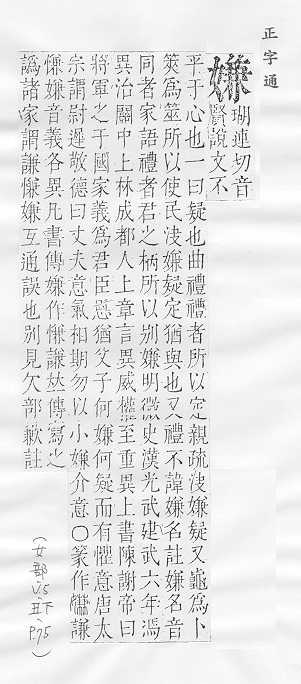 正字通
嫌
瑚連切音
賢說文不
平于心也一曰疑也曲禮禮者所以定親疏決嫌疑又龜爲卜
筴爲筮所以使民決嫌疑定猶與也又禮不諱嫌名註嫌名音
同者家語禮者君之柄所以別嫌明微史漢光武建武六年馮
異治關中上林成都人上章言異威權至重異上書陳謝帝曰
將軍之于國家義爲君臣恩猶父子何嫌何疑而有懼意唐太
宗謂尉遲敬德曰丈夫意氣相期勿以小嫌介意○篆作謙
慊嫌音義各異凡書傳嫌作慊謙𠀤傳寫之
譌諸家謂謙慊嫌互通誤也別見欠部歉註
(女部、丑下、P.75)